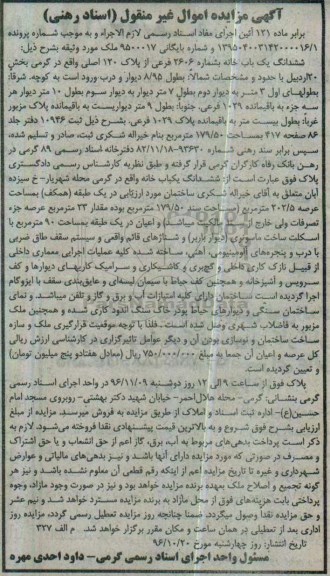 آگهی مزایده اموال غیر منقول (اسناد رهنی)
برابر ماده (۱۲۱ آئین اجرای مفاد اسناد رسمی لازم الاجراء و به موجب شماره پرونده
۱۳۹۵۰۴۰۰۳۱۴۲۰۰۰۰۱۶/۱ و شماره بایگانی ۹۵۰۰۰۱۷ ملک مورد وثیقه بشرح ذیل:
ششدانگ یک باب خانه بشماره ۲۶۰۶ فرعی از پلاک ۱۲۰ اصلی واقع در گرمی بخش
۲۰اردبیل با حدود و مشخصات شمالا: بطول ۸/۹۵ دیوار و درب ورود است به کوچه، شرقا:
بطولهای اول ۳ متر و دوم بطول ۷ متر دیوار به دیوار سوم بطول ۱۰ متر دیوار هر
سه جزء به باقیمانده ۱۰۲۹ فرعی، جنوبا: بطول ۹ متر دیواریست به باقیمانده پلاک مزبور
غربا: بطول بیست متر به باقیمانده پلاک ۱۰۲۹ فرعی، بشرح ذیل ثبت ۱۰۹۴۶ دفتر جلد
۸۶ صفحه ۴۱۷ بمساحت ۱۷۹/۵۰ مترمربع بنام خیراله شکری ثبت، صادر و تسلیم شده،
سپس برابر سند رهنی شماره ۹۳۶۳۰-۸۲/۱۱/۱۸ دفترخانه اسناد رسمی ۸۹ گرمی در
رهن بانک رفاه کارگران گرمی قرار گرفته و طبق نظریه کارشناس رسمی دادگستری
پلاک فوق عبارت است از: ششدانگ یکباب خانه واقع در گرمی محله شهریار- خ سیزده
آبان متعلق به آقای خیراله شکری ساختمان مورد ارزیابی در یک طبقه (همکف) بمساحت
عرصه ۲۰۲/۵ مترمربع (مساحت سند ۱۷۹/۵۰ مترمربع بوده مقدار ۲۳ مترمربع عرصه جزء
تصرفات ولی خارج از سند مالکیت میباشد) و اعیان در یک طبقه بمساحت ۹۰ مترمربع با
اسکلت ساخت ماسوری (دیوار باربر) و شناژهای قائم واقعی و سیستم سقف طاق ضربی
با درب و پنجره‌های آلومینیومی، آهنی، ساخته شده کلیه عملیات اجرایی معماری داخلی
از قبیل نازک کاری داخلی و گچبری و کاشیکاری و سرامیک کاریهای دیوارها و کف
سرویس و آشپزخانه و همچنین کف حیاط با سیمان لیسه‌ای و عایق‌بندی سقف با ایزوگام
اجرا گردیده است ساختمان دارای کلیه امتیازات آب و برق و گاز و تلفن میباشد و نمای
ساختمان سنگی و دیوارهای حیاط پودر خاک سنگ اندود کاری شده و همچنین ملک
مزبور به فاضلاب شهری وصل شده است. فلذا با توجه موقعیت قرارگیری ملک و سازه
ساخت ساختمان و نوسازی بودن آن و دیگر عوامل تاثیرگزاری در کارشناسی ارزش ریالی
کل عرصه و اعیان آن جمعا به مبلغ ۷۵۰/۰۰۰/۰۰۰ ریال (معادل هفتادو پنج میلیون تومان)
و تعیین گردیده است.
پلاک فوق از ساعت ۹ الی ۱۲ روز دوشنبه ۹۶/۱۱/۰۹ در واحد اجرای اسناد رسمی
گرمی بنشانی: گرمی- محله هلال‌احمر- خیابان شهید دکتر بهشتی- روبروی مسجد امام
حسین(ع)- اداره ثبت اسناد و املاک از طریق مزایده به فروش میرسد. مزایده از مبلغ
ارزیابی بشرح فوق شروع و به بالاترین قیمت پیشنهادی نقدا فروخته می‌شود. لازم به
ذکر است پرداخت بدهی‌های مربوط به آب، برق، گاز اعم از حق انشعاب و یا حق اشتراک
و مصرف در صورتی که مورد مزایده دارای آنها باشد و نیز بدهی‌های مالیاتی و عوارض
شهرداری و غیره تا تاریخ مزایده اعم از اینکه رقم قطعی آن معلوم نشده باشد و نیز هر
گونه تجمیع و اصلاح ملک بعهده برنده مزایده خواهد بود و نیز در صورت وجود مازاد، وجوه
پرداختی بابت هزینه‌های فوق از محل مازاد به برنده مزایده مسترد خواهد شد و نیم عشر
و حق مزایده نقدا وصول میگردد. ضمنا چنانچه روز مزایده تعطیل رسمی گردد، مزایده روز
اداری بعد از تعطیلی در همان ساعت و مکان مقرر برگزار خواهد شد. م الف ۳۲۷
تاریخ انتشار: روز چهارشنبه مورخ ۹۶/۱۰/۲۰
مسئول واحد اجرای اسناد رسمی گرمی- داود احدی مهره